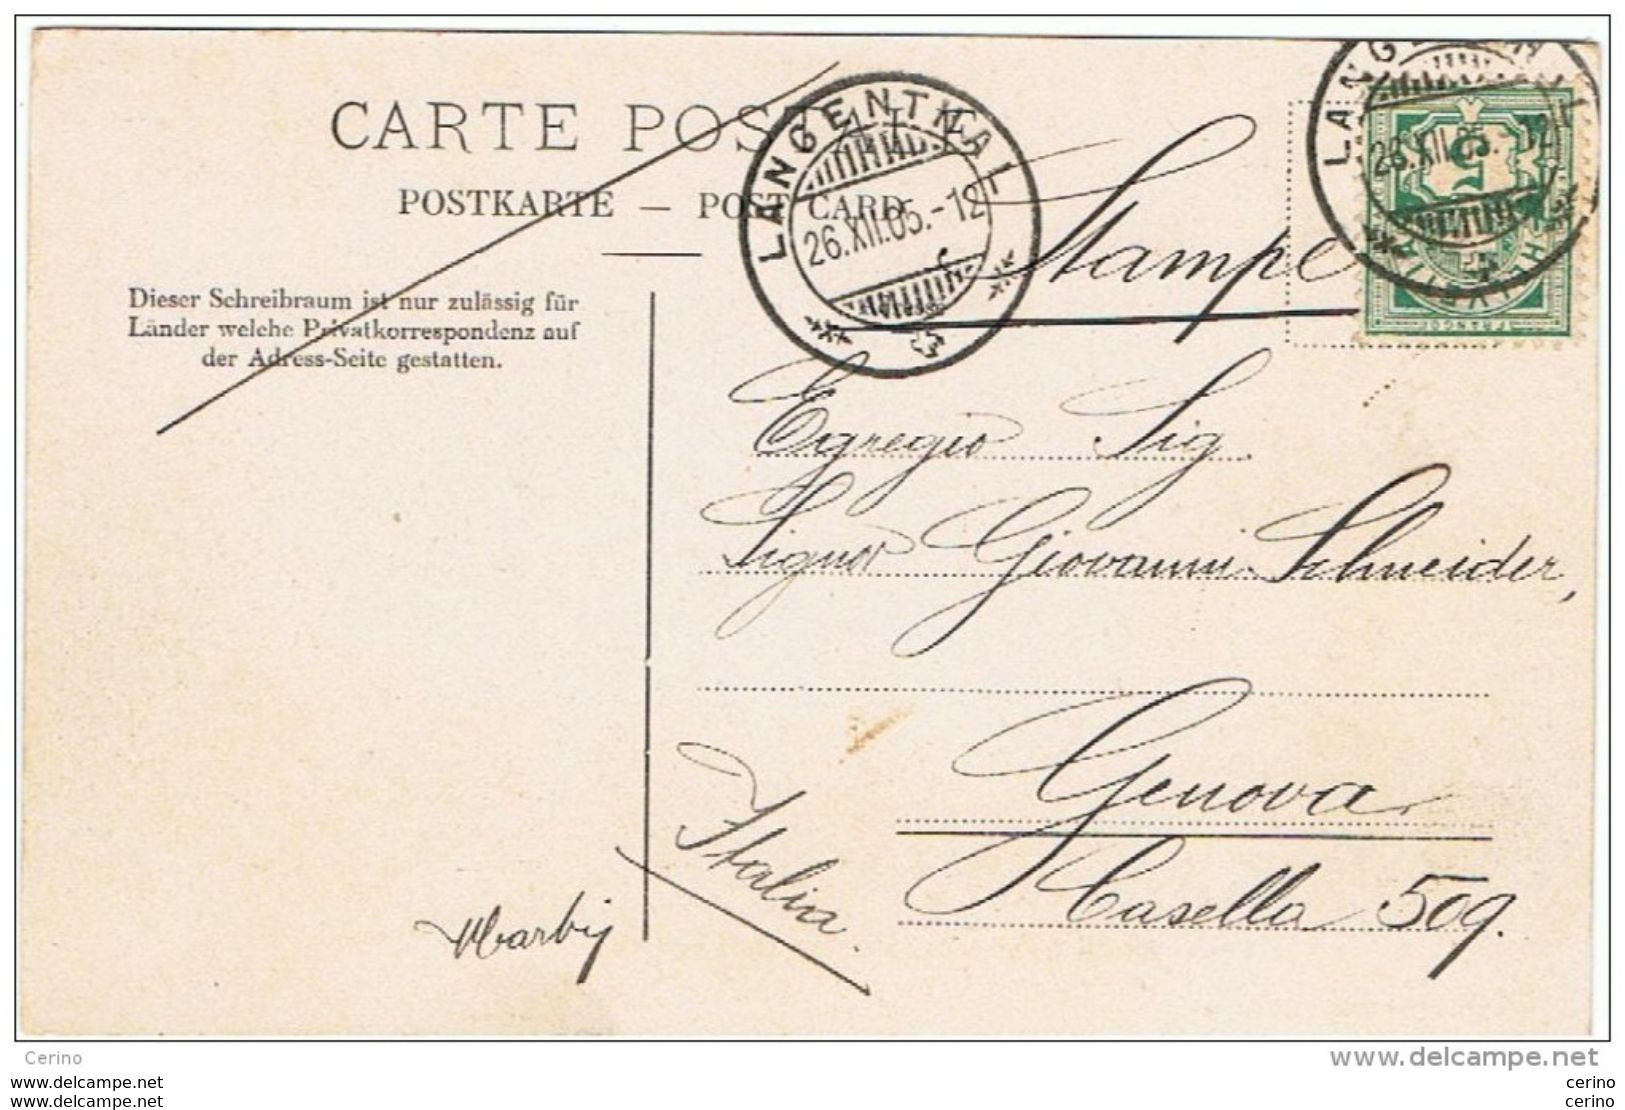 CARTE POSTALE
POSTKARTE — POST CARD
Dieser Schreibraum ist nur zulässig für
Länder welche Privatkorrespondenz auf
der Adress-Seite gestatten.
LANGENTHAL
26.XII.05.-12
LANGENTHAL
26.XII.05.-12
5
HELVETIA
FRANCO
Stampe
Egregio Sig.
Signor Giovanni Schneider,
Genova
Casella 509.
Italia.
Cerino
www.delcampe.net
www.delcampe.com
cerino
www.delcampe.com
cerino